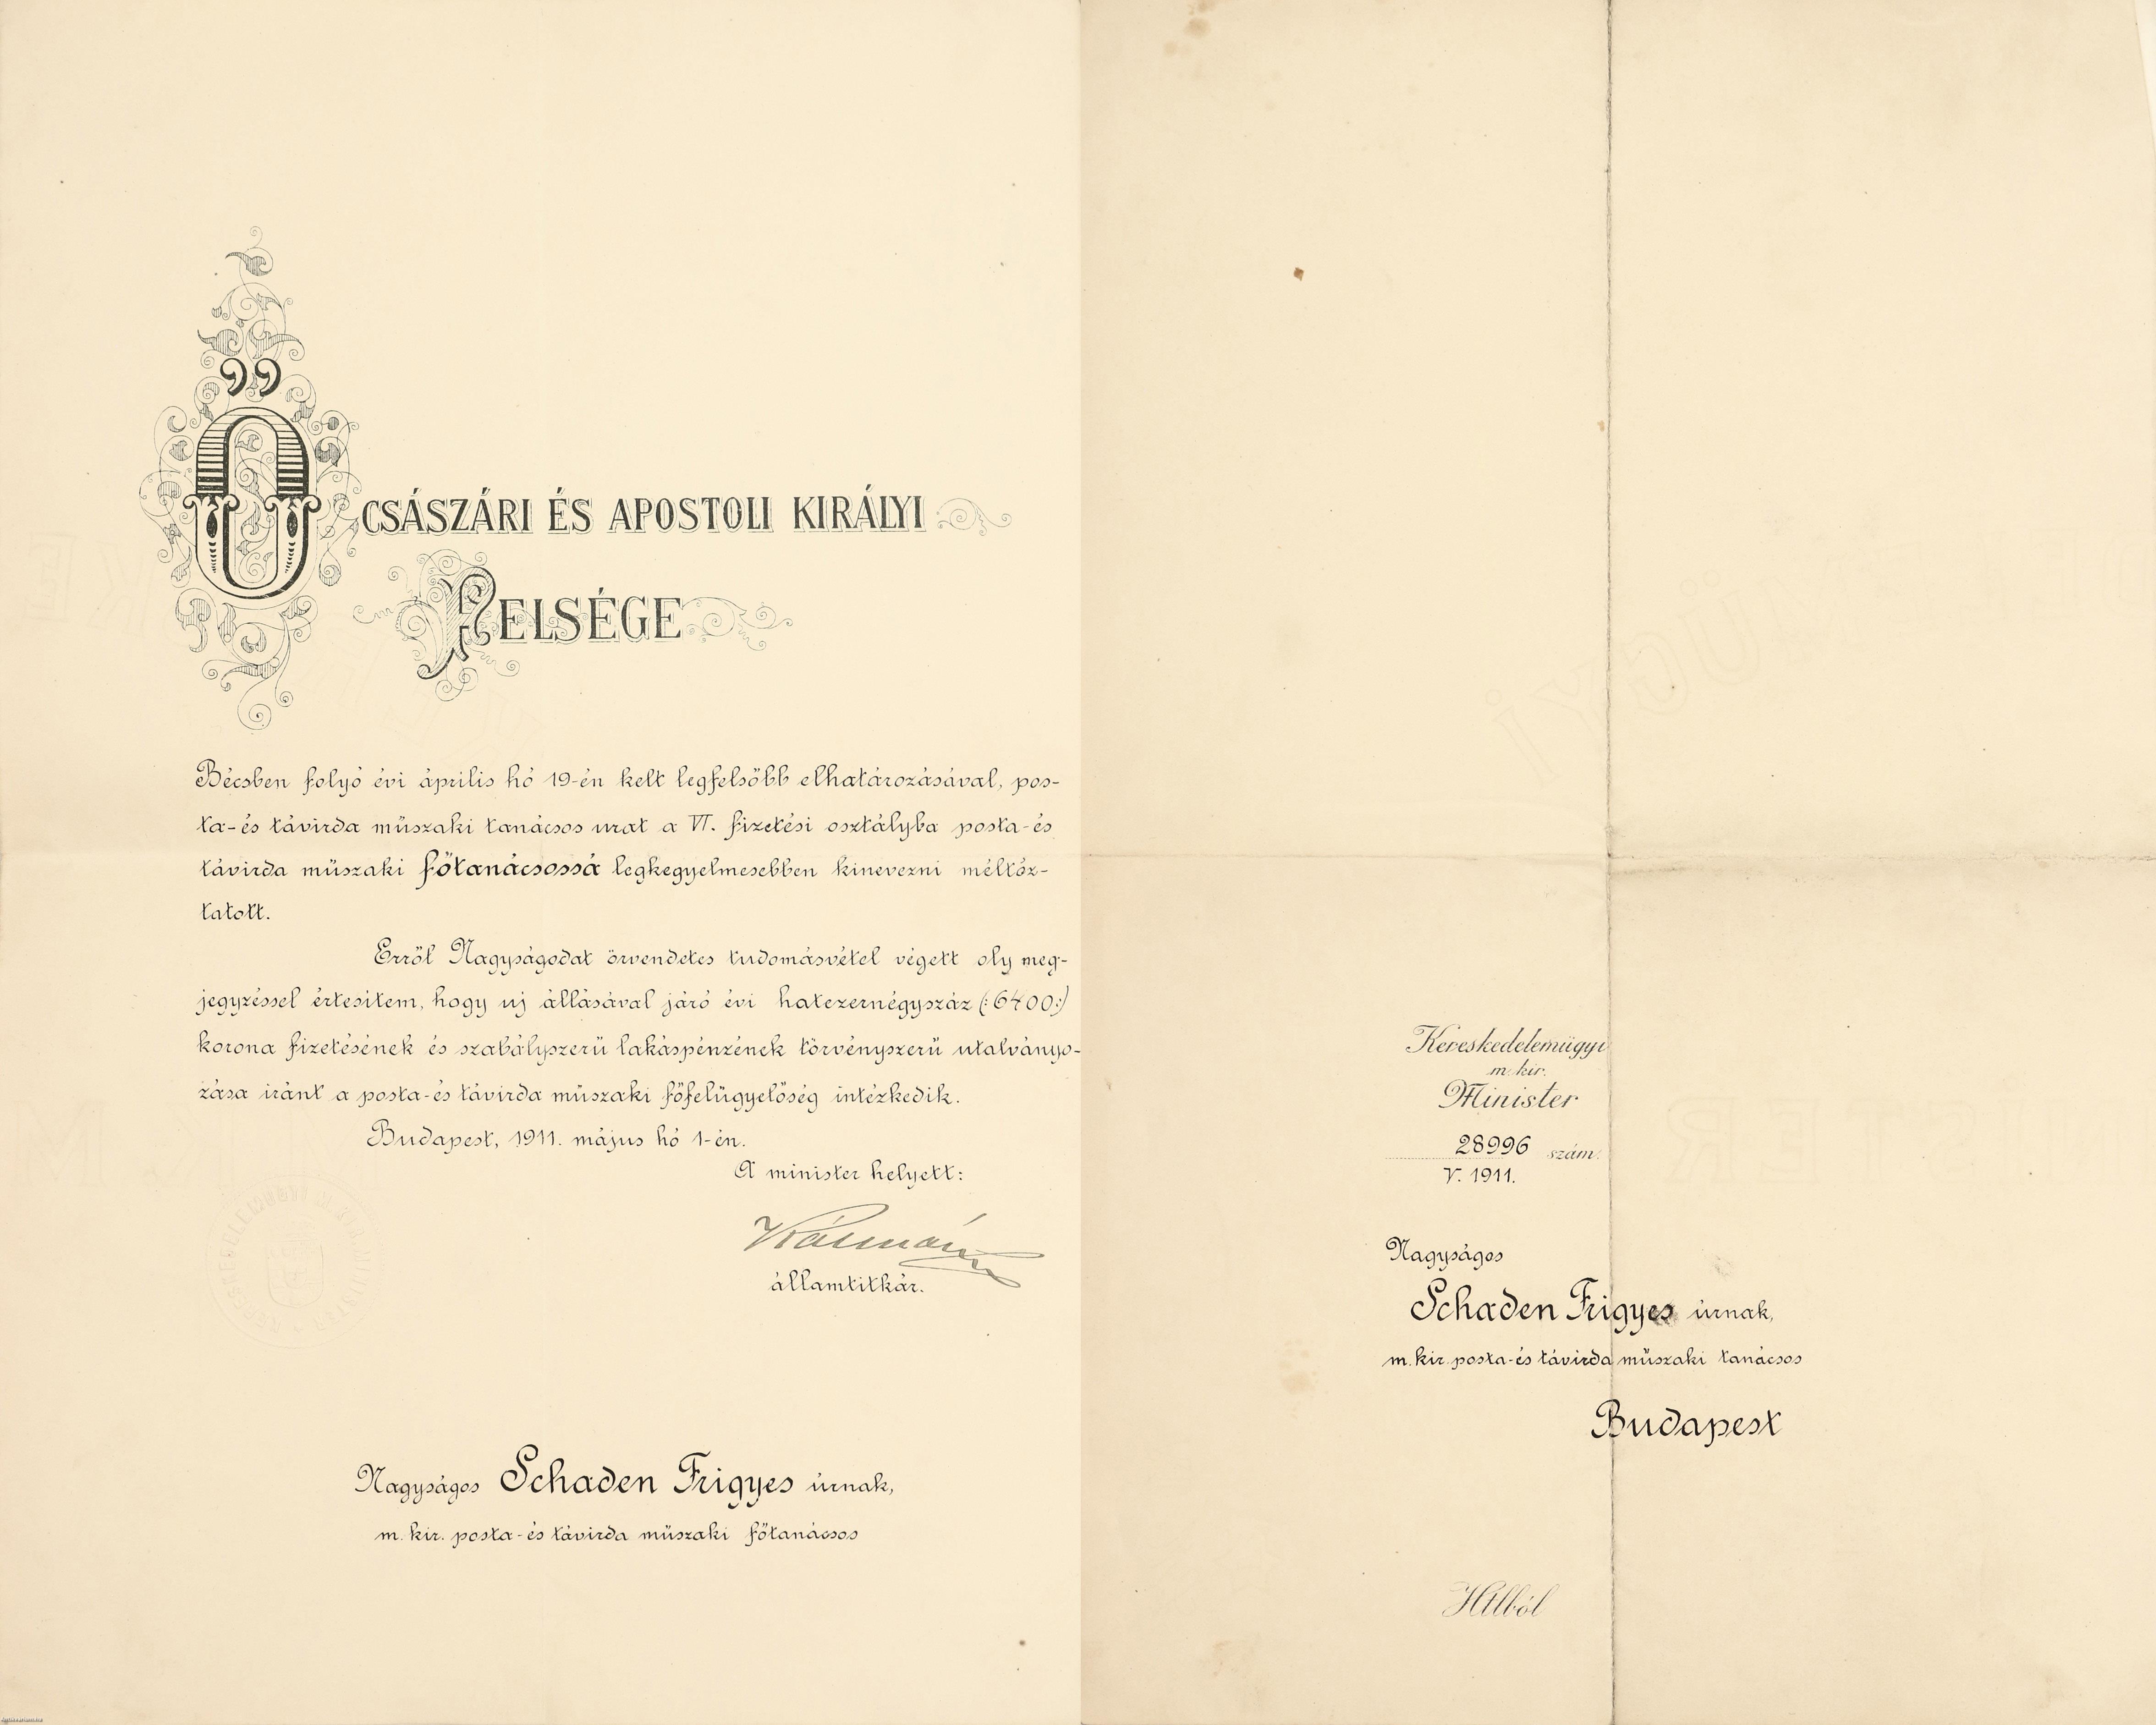 Ő CSÁSZÁRI ÉS APOSTOLI KIRÁLYI
FELSÉGE
Bécsben folyó évi április hó 19-én kelt legfelsőbb elhatározásával, pos-
ta-és távirda műszaki tanácsos urat a VI. fizetési osztályba posta-és
távirda műszaki főtanácsossá legkegyelmesebben kinevezni méltóz-
tatott.
Erről Nagyságodat örvendetes tudomásvétel végett oly meg-
jegyzéssel értesítem, hogy uj állásával járó évi hatezernégyszáz (:6400:)
korona fizetésének és szabályszerű lakáspénzének törvényszerű utalványo-
zása iránt a posta-és távirda műszaki főfelügyelőség intézkedik.
Budapest, 1911. május hó 1-én.
A minister helyett:
Kálmán
államtitkár.
KERESKEDELEMÜGYI M. KIR. MINISTER
Nagyságos Schaden Frigyes úrnak,
m. kir. posta-és távirda műszaki főtanácsos
Kereskedelemügyi
m. kir.
Minister
28996 szám.
V. 1911.
Nagyságos
Schaden Frigyes úrnak,
m. kir. posta-és távirda műszaki tanácsos
Budapest
Htlból